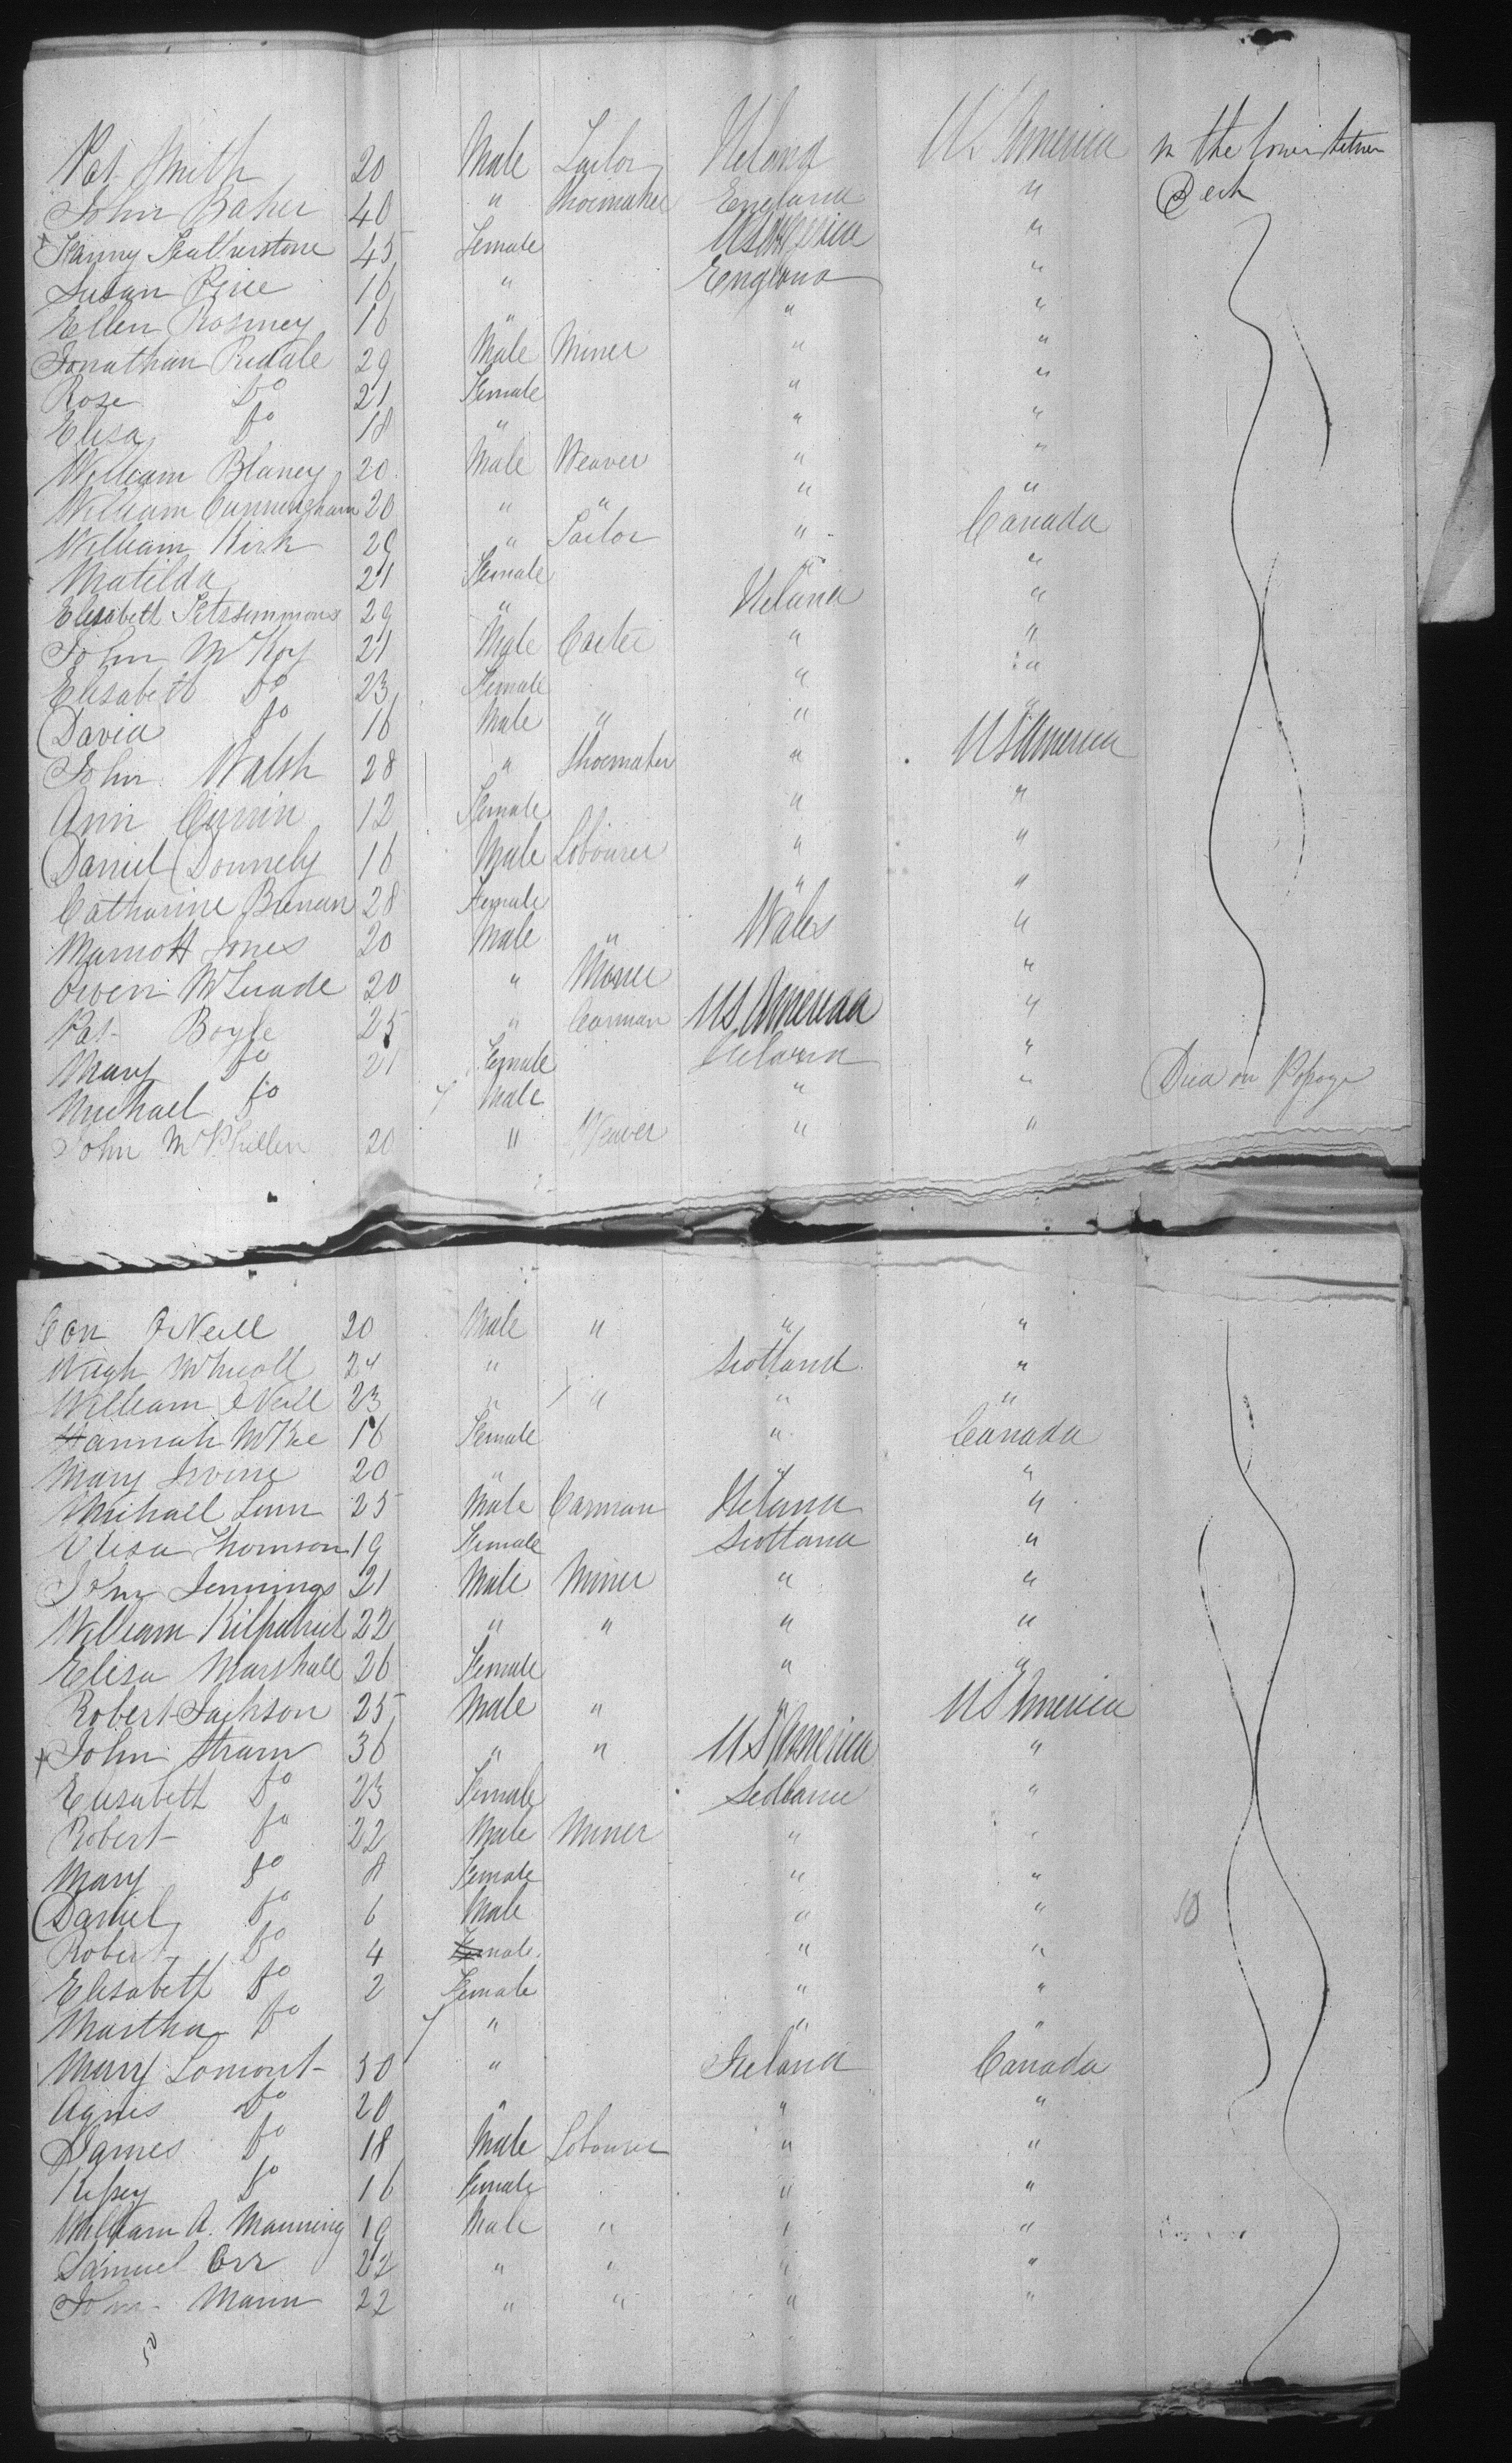 Pat Smith 20 Male Tailor Ireland U.S. America in the lower between
John Baker 40 " Shoemaker England " Deck
x Fanny Featherstone 45 Female US America "
Susan Price 16 " England "
Ellen 16 " " "
Jonathan Ridale 29 Male Miner " "
Rose Do 21 Female " "
Elisa Do 18 " " "
William Blaney 20 Male Weaver " "
William Cunningham 20 " " " "
William Kirk 29 " Tailor " Canada
Matilda 21 Female " "
Elizabeth Fitssimmons 29 " Ireland "
John McKoy 21 Male Carter " "
Elisabeth Do 23 Female " "
David Do 16 Male " " "
John Walsh 28 " Shoemaker " US America
Ann Currin 12 Female " "
Daniel Donnely 16 Male Labourer " "
Catharine Brenan 28 Female " "
Marriott Jones 20 Male " Wales "
Owen McQuade 20 " "
Pat Boyle 25 " Carman US America "
Mary Do 21 Female Ireland "
Michael Do 7 Male " " Died on
John McPhillen 20 " Weaver " "
Con O'Neill 20 Male " " "
Hugh 24 " Scotland "
William O'Neill 23 " " " "
Hannah McKee 16 Female " Canada
Mary Irvine 20 " " "
Michael Linn 25 Male Carman Ireland "
Elisa Thomson 19 Female Scotland "
John Jennings 21 Male Miner " "
William Kilpatrick 22 " " " "
Elisa Marshall 26 Female " "
Robert Jackson 25 Male " " US America
x John Stram 36 " " US America "
Elisabeth Do 23 Female Scotland "
Robert Do 22 Male Miner " "
Mary Do 8 Female " "
Daniel Do 6 Male " " 50
Robert Do 4 male " "
Elisabeth Do 2 Female " "
Martha Do 7 " " "
Mary Lomont 30 " Ireland Canada
Agnes Do 20 " " "
James Do 18 Male Labourer " "
Do 16 Female " "
William A. Manning 19 Male " " "
Samuel Orr 22 " " " "
John Mann 22 " " " "
50